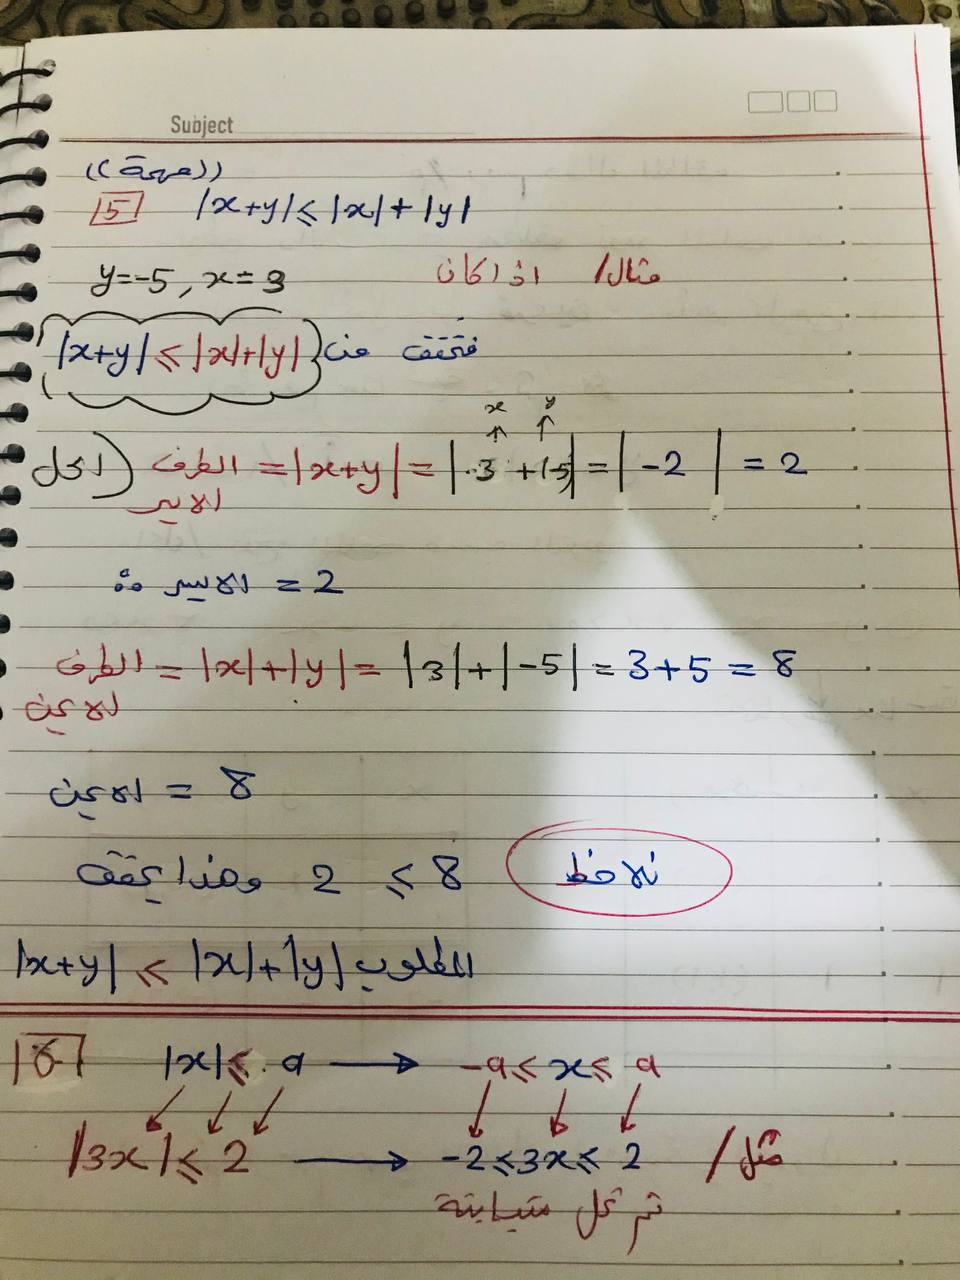 Subject
((مهمة))
5 |x+y| ≤ |x|+|y|
مثال/ اذا كان y=-5 , x=3
فتحقق من |x+y| ≤ |x|+|y|
x y
الحل) الطرف الايسر = |x+y| = |3+(-5)| = |-2| = 2
الايسر = 2
الطرف الايمن = |x|+|y| = |3|+|-5| = 3+5 = 8
الايمن = 8
نلاحظ 2 ≤ 8 وهذا يحقق
المطلوب |x+y| ≤ |x|+|y|
6 |x| ≤ a → -a ≤ x ≤ a
مثل/ |3x| ≤ 2 → -2 ≤ 3x ≤ 2
ثم نحل متباينة